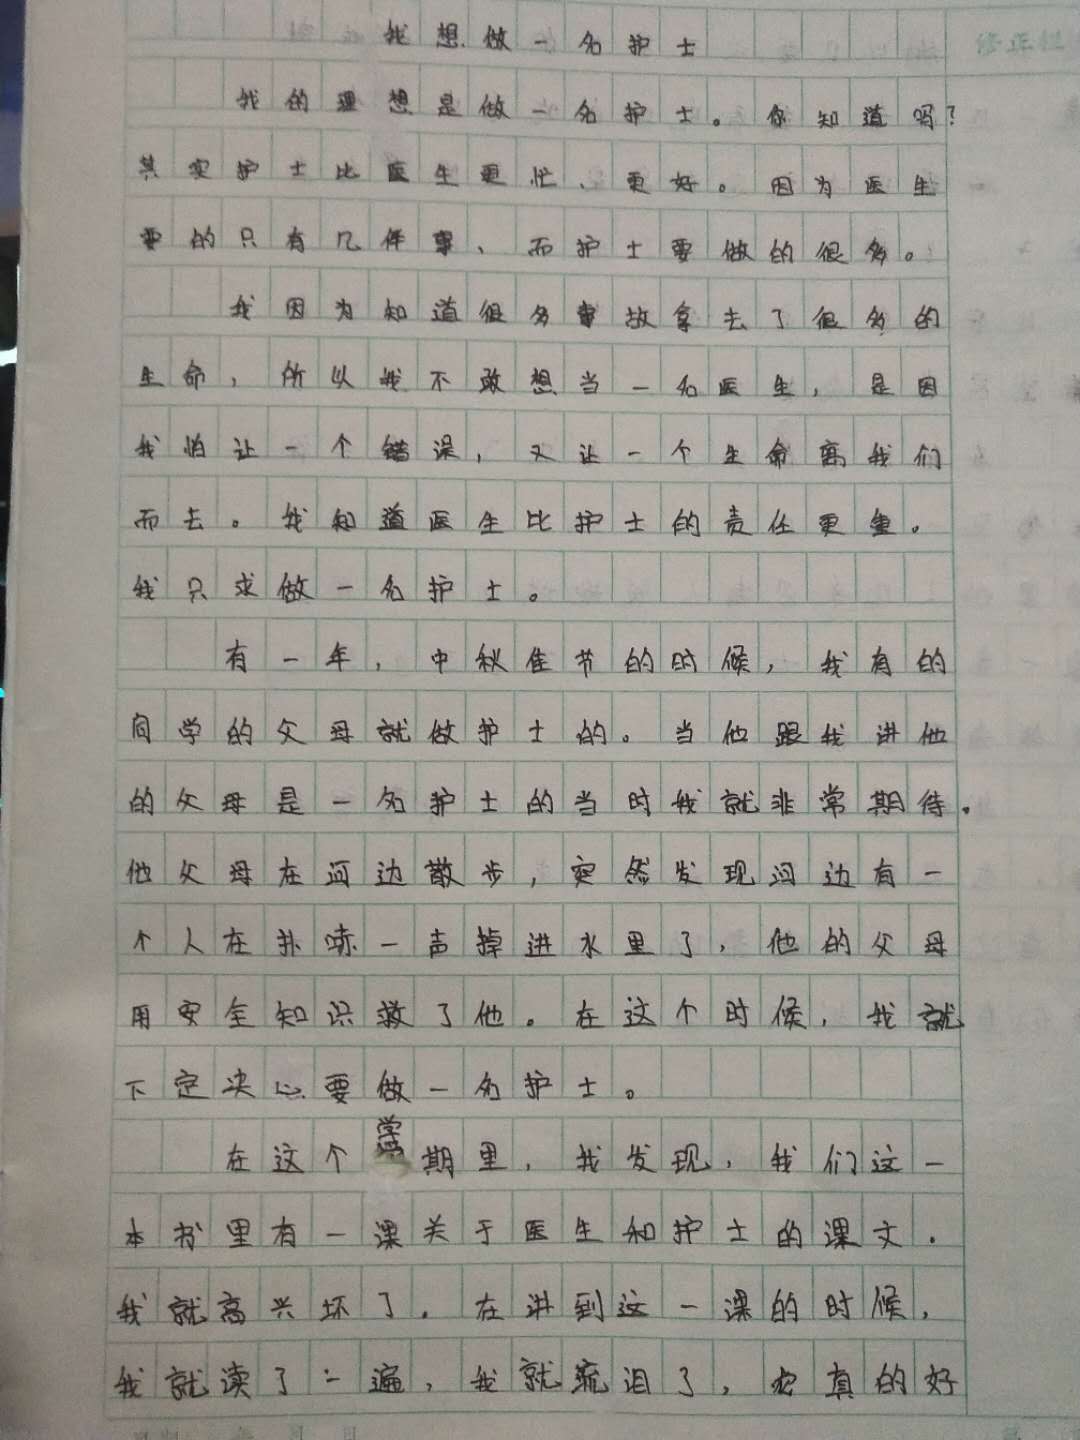 我想做一名护士
我的理想是做一名护士。你知道吗?
其实护士比医生更忙、更好。因为医生
要的只有几件事、而护士要做的很多。
我因为知道很多事故拿去了很多的
生命，所以我不敢想当一名医生，是因
我怕让一个错误，又让一个生命离我们
而去。我知道医生比护士的责任更重。
我只求做一名护士。
有一年，中秋佳节的时候，我有的
同学的父母就做护士的。当他跟我讲他
的父母是一名护士的当时我就非常期待。
他父母在河边散步，突然发现河边有一
个人在扑哧一声掉进水里了，他的父母
用安全知识救了他。在这个时候，我就
下定决心要做一名护士。
在这个学期里，我发现，我们这一
本书里有一课关于医生和护士的课文.
我就高兴坏了.在讲到这一课的时候，
我就读了二遍，我就流泪了，真的好
修正栏